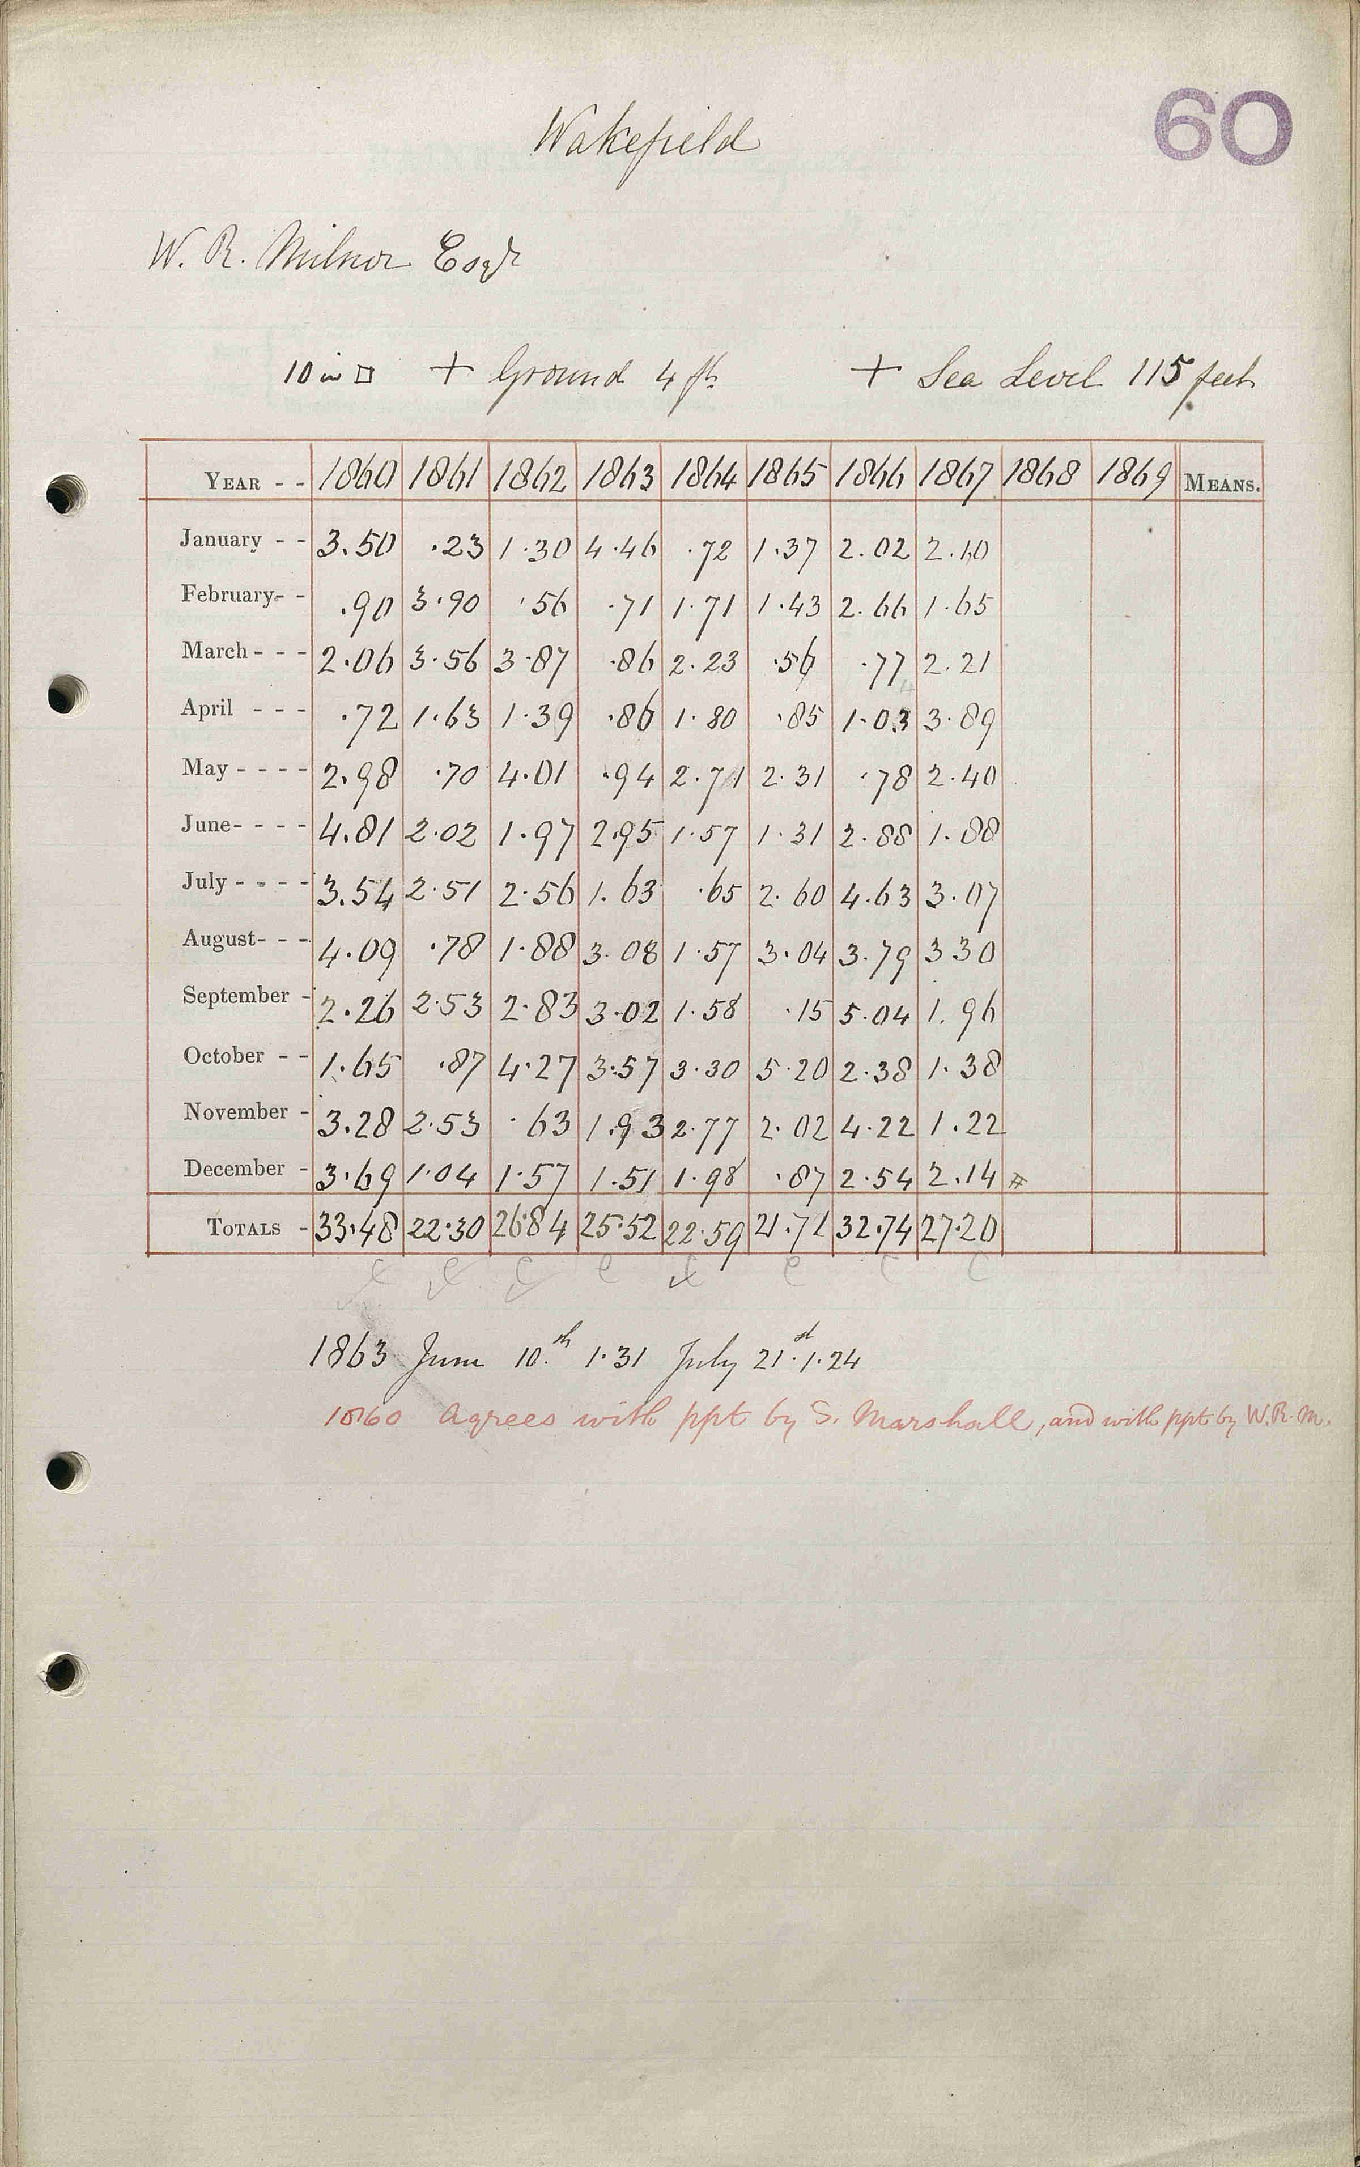 60
Wakefield
W. R. Milner Esqr
10 in □ + Ground 4 ft + Sea Level 115 feet
YEAR - - 1860 1861 1862 1863 1864 1865 1866 1867 1868 1869 MEANS.
January - - 3.50 .23 1.30 4.46 .72 1.37 2.02 2.10
February- - .90 3.90 .56 .71 1.71 1.43 2.66 1.65
March - - - 2.06 3.56 3.87 .86 2.23 .56 .77 2.21
April - - - .72 1.63 1.39 .86 1.80 .85 1.03 3.89
May - - - - 2.98 .70 4.01 .94 2.71 2.31 .78 2.40
June- - - - 4.81 2.02 1.97 2.95 1.57 1.31 2.88 1.88
July - - - - 3.54 2.51 2.56 1.63 .65 2.60 4.63 3.07
August- - - 4.09 .78 1.88 3.08 1.57 3.04 3.79 3 30
September - 2.26 2.53 2.83 3.02 1.58 .15 5.04 1.96
October - - 1.65 .87 4.27 3.57 3.30 5.20 2.38 1.38
November - 3.28 2.53 .63 1.93 2.77 2.02 4.22 1.22
December - 3.69 1.04 1.57 1.51 1.98 .87 2.54 2.14 #
TOTALS - 33.48 22.30 26.84 25.52 22.59 21.71 32.74 27.20
1863 June 10th 1.31 July 21st 1.24
1860 Agrees with ppt by S. Marshall, and with ppt by W.R.M.